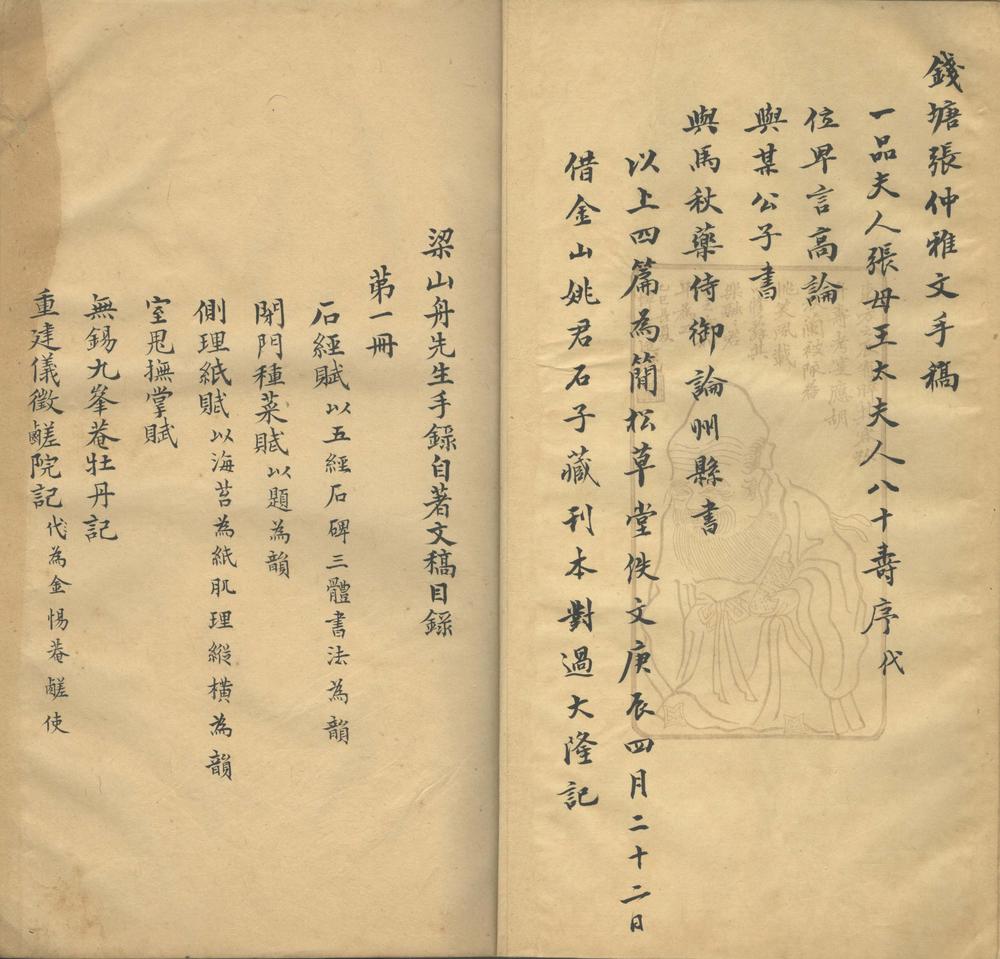 錢塘張仲雅文手稿
一品夫人張母王太夫人八十壽序代
位卑言高論
與某公子書
與馬秋藥侍御論州縣書
以上四篇為簡松草堂佚文庚辰四月二十二日
借金山姚君石子藏刊本對過大隆記
梁山舟先生手錄自著文稿目錄
苐一冊
石經賦以五經石碑三體書法為韻
閉門種菜賦以題為韻
側理紙賦以海苔為紙肌理縱橫為韻
室鬼撫掌賦
無錫九峯菴牡丹記
重建儀徵鹺院記代為金惕菴鹺使